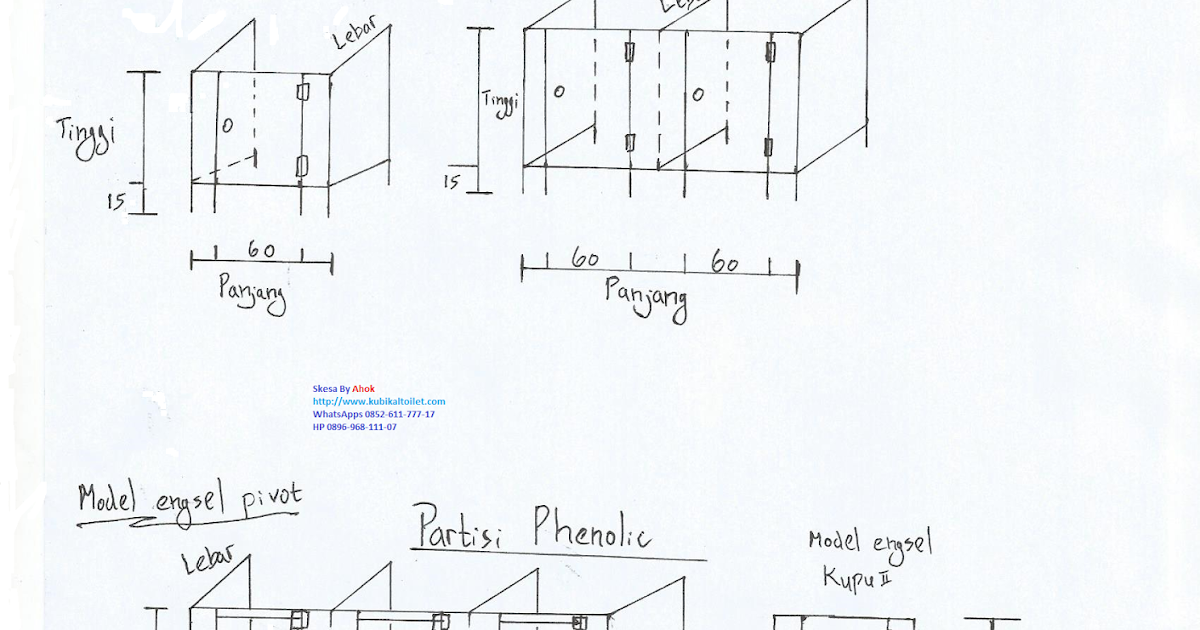 Lebar
Tinggi
15
60
Panjang
Tinggi
15
60
60
Panjang
Skesa By Ahok
http://www.kubikaltoilet.com
WhatsApps 0852-611-777-17
HP 0896-968-111-07
Model engsel pivot
Partisi Phenolic
Model engsel
Kupu II
Lebar